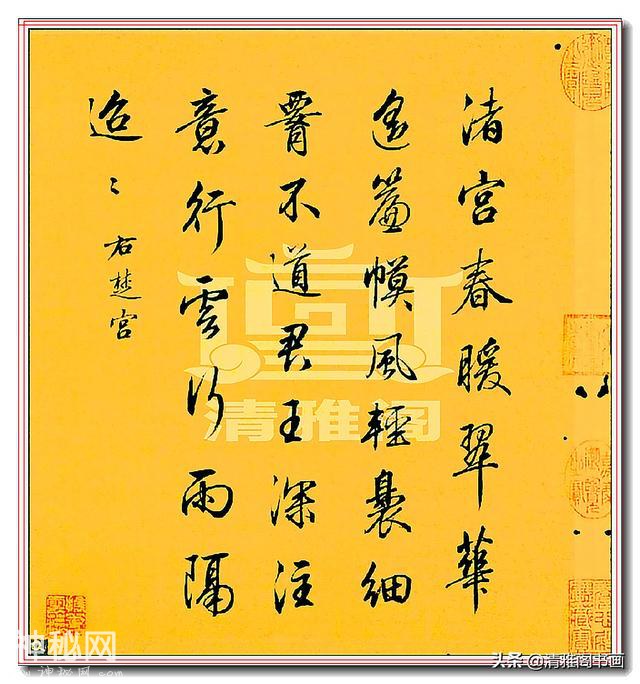 渚宮春暖翠華
遙簾幙風輕裊細
腰不道君王深注
意行雲行雨隔
迢〻右楚宮
清雅阁
神秘网
头条@清雅阁书画